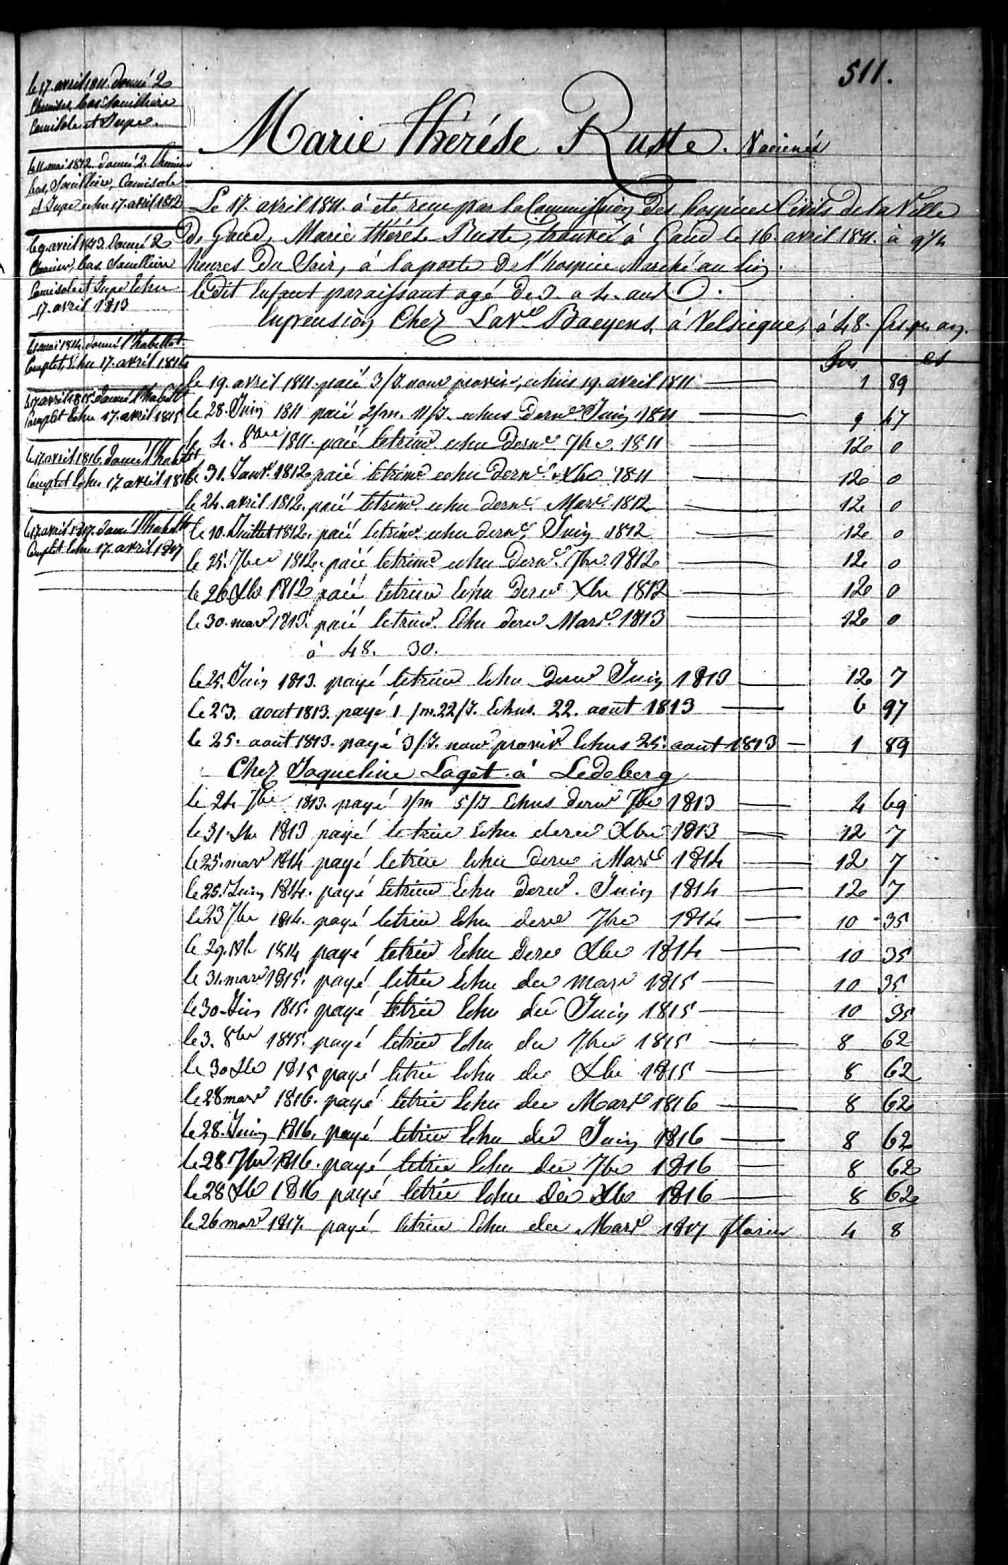 511.
Marie Thérése Ruste. Vaccinés
le 17. avril 1811. donné 2
Chemises, bas Souilliere
Camisole et Jupe.
le 11. mai 1812. donné 2. Chemises
bas, Souilliere, Camisole
et Jupe echu 17. avril 1812
le 9 avril 1813. donné 2
Chemises, bas Souilliere
Camisole et Jupe Echu
17. avril 1813
mai 1814. donné l'habillt.
Complet, Echu 17. avril 1814
avril 1815. donné l'habillt
Complet Echu 17. avril 1815
le 17 avril 1816. donné l'habillt
Complet Echu 17 avril 1816
le 17 avril 1817. donné l'habillt
Complet Echu 17. avril 1817
Le 17. avril 1811. à été recu par la Commission des hospices Civils de la Ville
de Gand, Marie thérése Ruste, trouvée à Gand le 16. avril 1811. à 9½
heures du Soir, à la porte de l'hospice Marché au lin.
Ledit Enfant paraissant agé de 3. a 4. ans.
En pension Chez La Ve Baeyens, à Velsieque, à 48. frs pr. an.
frs ct
le 19. avril 1811. paié 3/J. nour provis. echus 19. avril 1811 1 89
le 28. Juin 1811 paié 2/m. 11/J. echus dernr Juin 1811 9 47
le 4. 8bre 1811. paié le trime echu dernr 7bre. 1811 12 0
le 31. Janvr 1812. paié le trime echu dernr. Xbre 1811 12 0
le 24. avril 1812. paié le trime echu dernr Mars 1812 12 0
le 10. Juillet 1812. paié le trime echu dernr. Juin 1812 12 0
le 25. 7bre 1812. paié le trime echu dernr. 7bre. 1812 12 0
le 26 Xbre 1812 paié le trime Echu dernr Xbre 1812 12 0
le 30. mars 1813. paié le trime. Echu dernr Mars. 1813 12 0
à 48. 30.
le 25. Juin 1813. payé le trime Echu dernr Juin 1813 12 7
le 23. aout 1813. payé 1/m. 22/J. Echus. 22. aout 1813 6 97
le 25. aout 1813. payé 3/J. nour provis Echus 25. aout 1813 1 89
Chez Jaqueline Laget. à Ledeberg
le 24 7bre 1813. payé 1/m 5/J Echus dernr 7bre 1813 4 69
le 31. Xbre 1813 payé le trime Echu dernr Xbre 1813 12 7
le 25. mars 1814 payé le trime Echu dernr Mars 1814 12 7
le 25. Juin 1814. payé le trime Echu dernr. Juin 1814 12 7
le 23 7bre 1814. payé le trime Echu dernr 7bre 1814 10 35
le 29. Xbre 1814 payé le trime Echu dernr Xbre 1814 10 35
le 31. mars 1815. payé le trime Echu der mars 1815 10 35
le 30. Juin 1815. payé le trime Echu der Juin 1815 10 35
le 3. 8bre 1815. payé le trime Echu der 7bre 1815 8 62
le 30 Xbre 1815 payé le trime Echu der Xbre 1815 8 62
le 28 mars 1816. payé le trime Echu der Mars 1816 8 62
le 28. Juin 1816. payé le trime Echu der Juin 1816 8 62
le 28 7bre 1816. payé le trime Echu der 7bre 1816 8 62
le 28 Xbre 1816 payé le trime Echu der Xbre 1816 8 62
le 26 mars 1817. payé le trime Echu der Mars 1817 florins 4 8